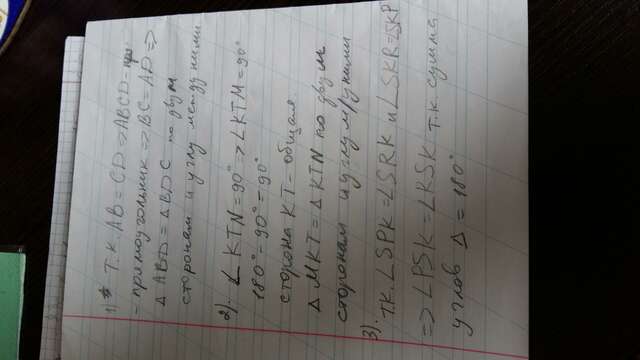 1) Т.К. AB = CD => ABCD -
- прямоугольник => BC = AD =>
Δ ABD = Δ BDC по двум
сторонам и углу между ними
2). ∠ KTN = 90° => ∠KTM = 90°
180° - 90° = 90°
сторона KT - общая
Δ MKT = Δ KTN по двум
сторонам и углу м/у ними
3). т.к. ∠SPK = ∠SRK и ∠SKR = SKP
=> ∠PSK = ∠RSK т.к сумма
углов Δ = 180°